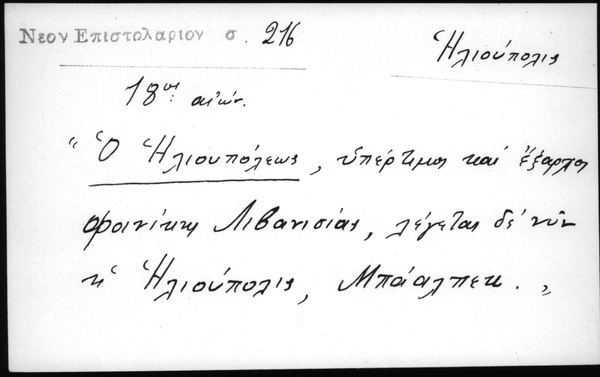 Νεον Επιστολαριον σ. 216
Ἡλιούπολις
18ος αἰών.
"Ὁ Ἡλιουπόλεως, ὑπέρτιμος καὶ ἔξαρχος
Φοινίκης Λιβανισίας, λέγεται δὲ νῦν
ἡ Ἡλιούπολις, Μπάαλπεκ."